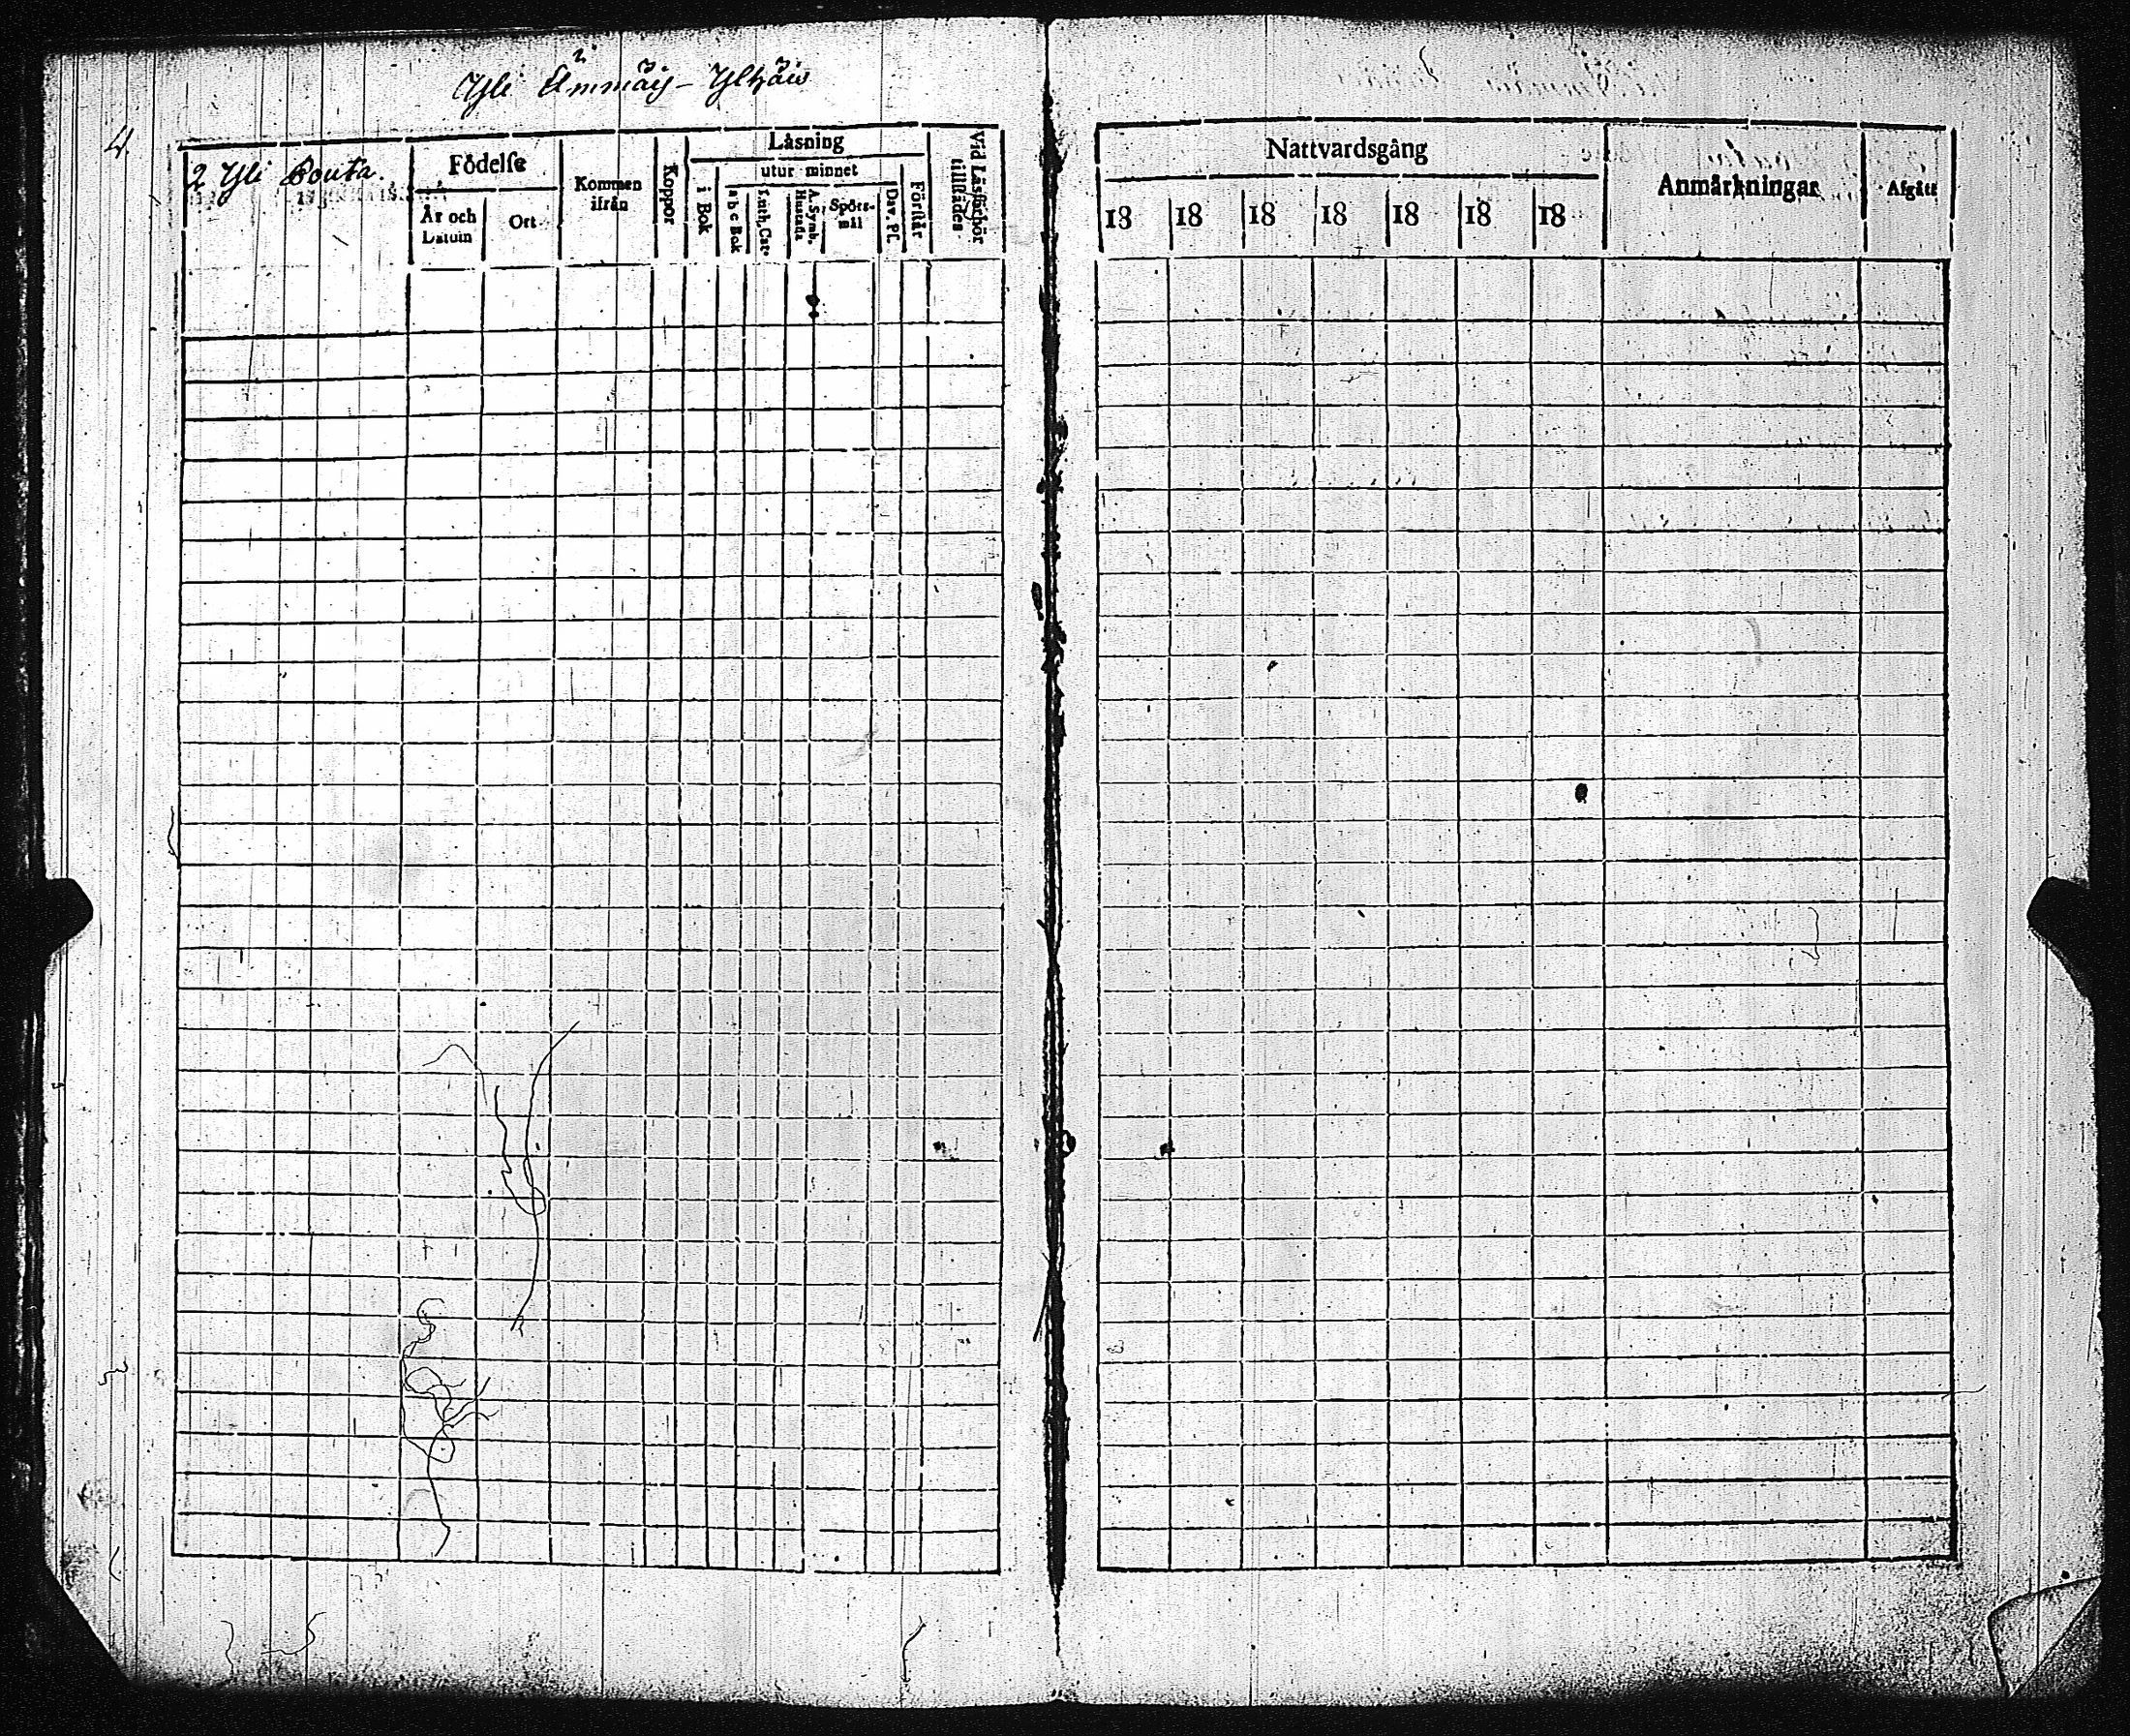 Yli Ämmäis-
4.
2 Yli Pouta.
Födelse
År och Datum
Ort
Kommen ifrån
Koppor
Läsning
i Bok
utur minnet
a b c Bok
Luth. Cat.
A. Symb. Hustafla
Spörs-mål
Dav. Ps.
Förstår
Vid Läsförhör tillstädes
Nattvardsgång
18 18 18 18 18 18 18
Anmärkningar
Afgått